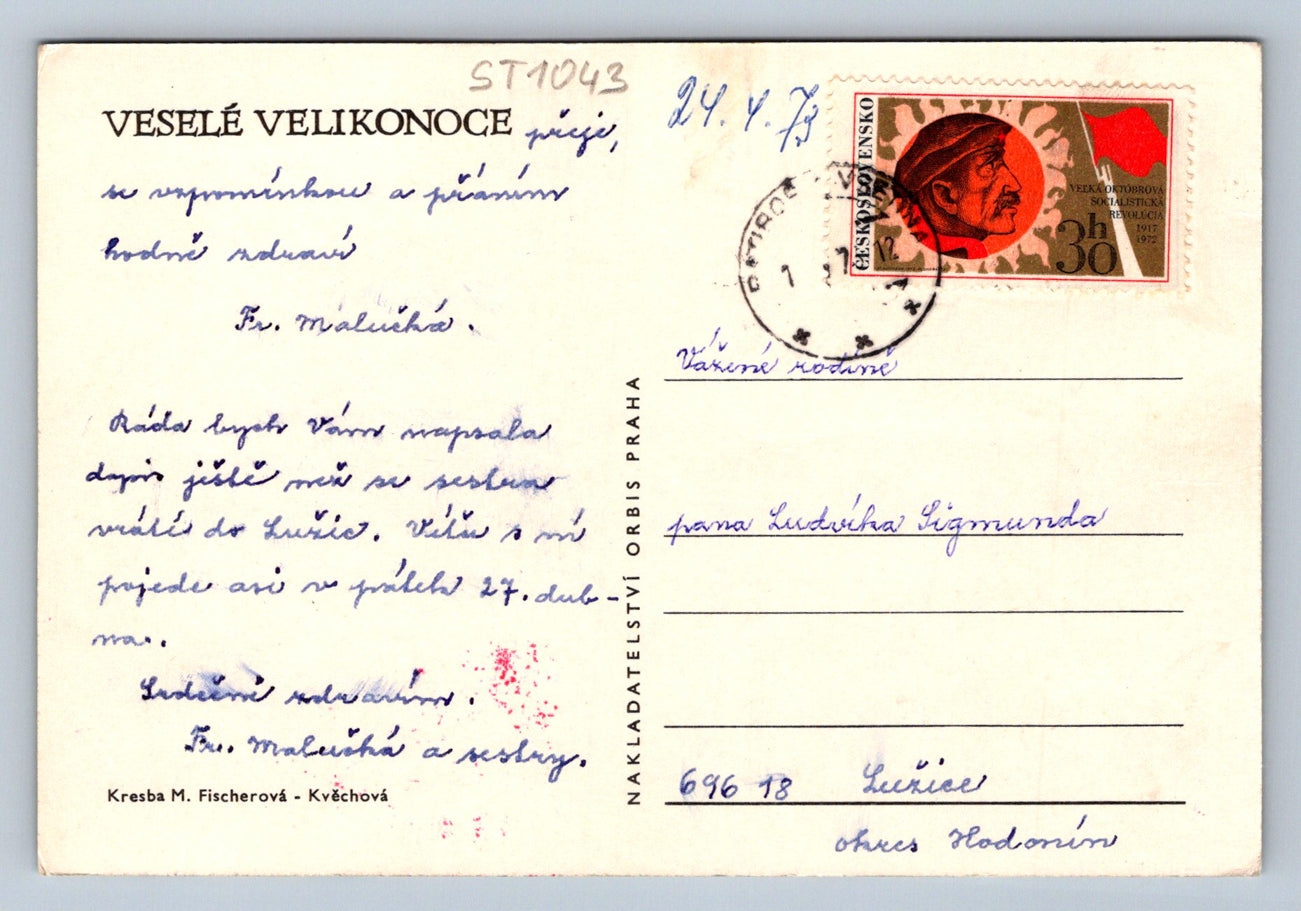 ST1043
VESELÉ VELIKONOCE přeje,
se vzpomínkou a přáním
hodně zdraví
Fr. Malučká.
Ráda bych Vám napsala
dopis ještě než se sestra
vrátí do Lužic. Víťa s ní
pojede asi v pátek 27. dub-
na.
Srdečně zdravím.
Fr. Malučká a sestry.
Kresba M. Fischerová - Kvěchová
NAKLADATELSTVÍ ORBIS PRAHA
24. 4. 73
ČESKOSLOVENSKO
VEĽKÁ OKTÓBROVÁ
SOCIALISTICKÁ
REVOLÚCIA
1917
1972
30h
Vážené rodině
pana Ludvíka Sigmunda
696 18 Lužice
okres Hodonín